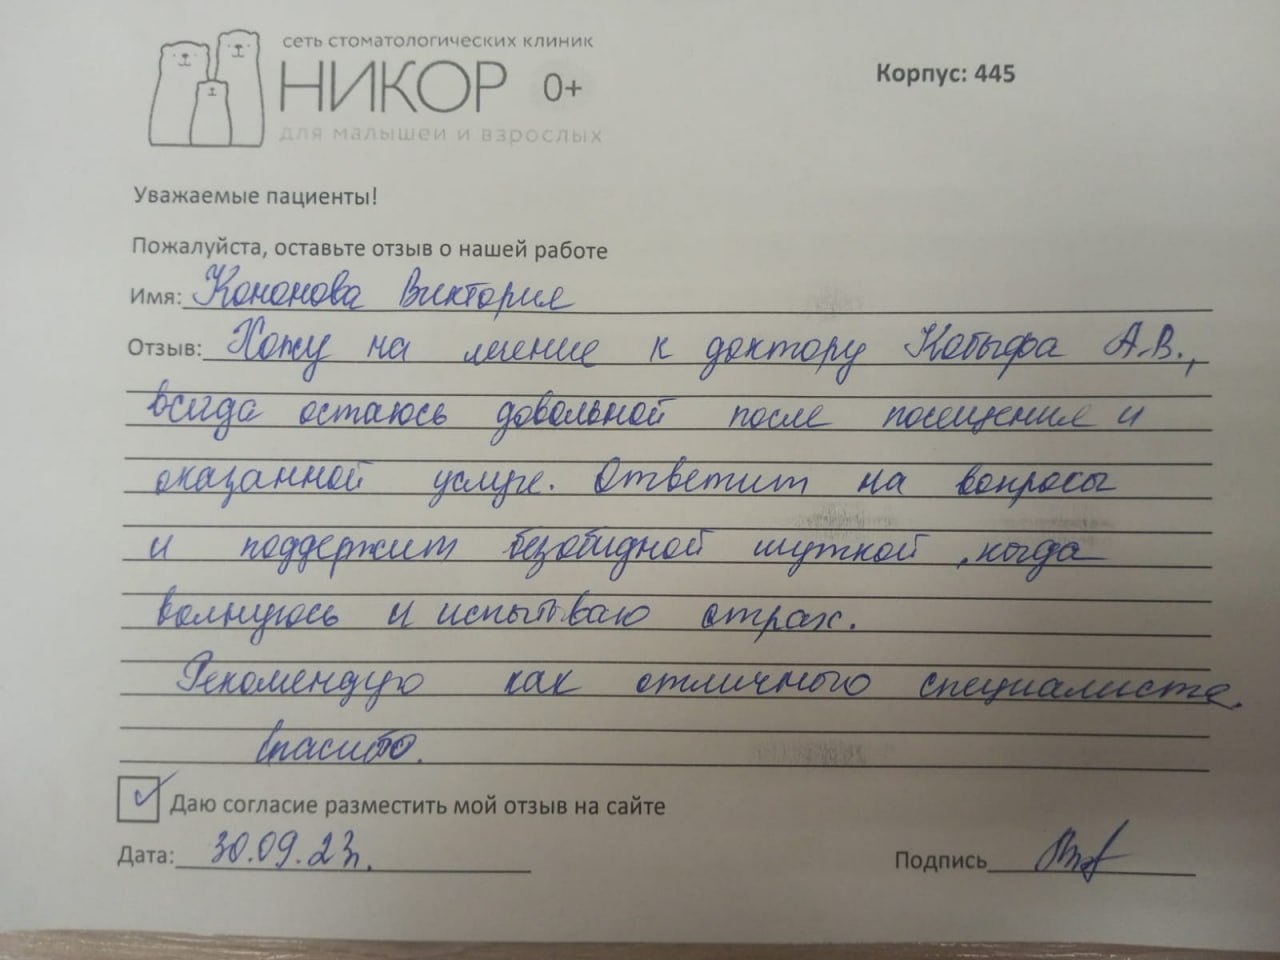 сеть стоматологических клиник
НИКОР 0+
для малышей и взрослых
Корпус: 445
Уважаемые пациенты!
Пожалуйста, оставьте отзыв о нашей работе
Имя: Кононова Виктория
Отзыв: Хожу на лечение к доктору Кобыфа А.В.,
всегда остаюсь довольной после посещения и
оказанной услуге. Ответит на вопросы
и поддержит безобидной шуткой, когда
волнуюсь и испытываю страх.
Рекомендую как отличного специалиста.
Спасибо.
Даю согласие разместить мой отзыв на сайте
Дата: 30.09.23г.
Подпись